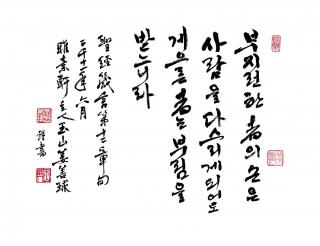 부지런한 者의 손은
사람을 다스리게되어도
게으른 者는 부림을
받느니라
聖經箴言第十二章句
六月
素軒主人玉山姜善球
謹書